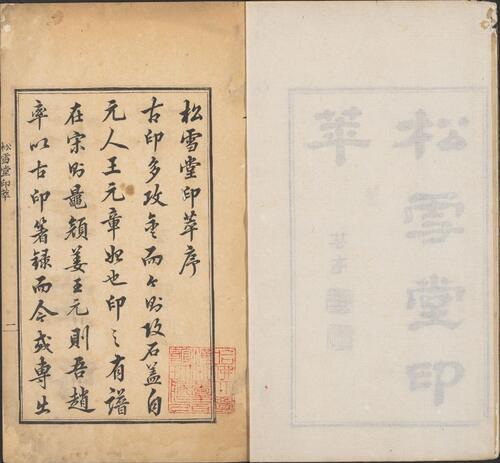 松雪堂印
萃
松雪堂印萃序
古印多攻金而今則攻石蓋自
元人王元章始也印之有譜
在宋則鼂顏姜王元則吾趙
率以古印箸錄而今或專出
松雪堂印萃
一